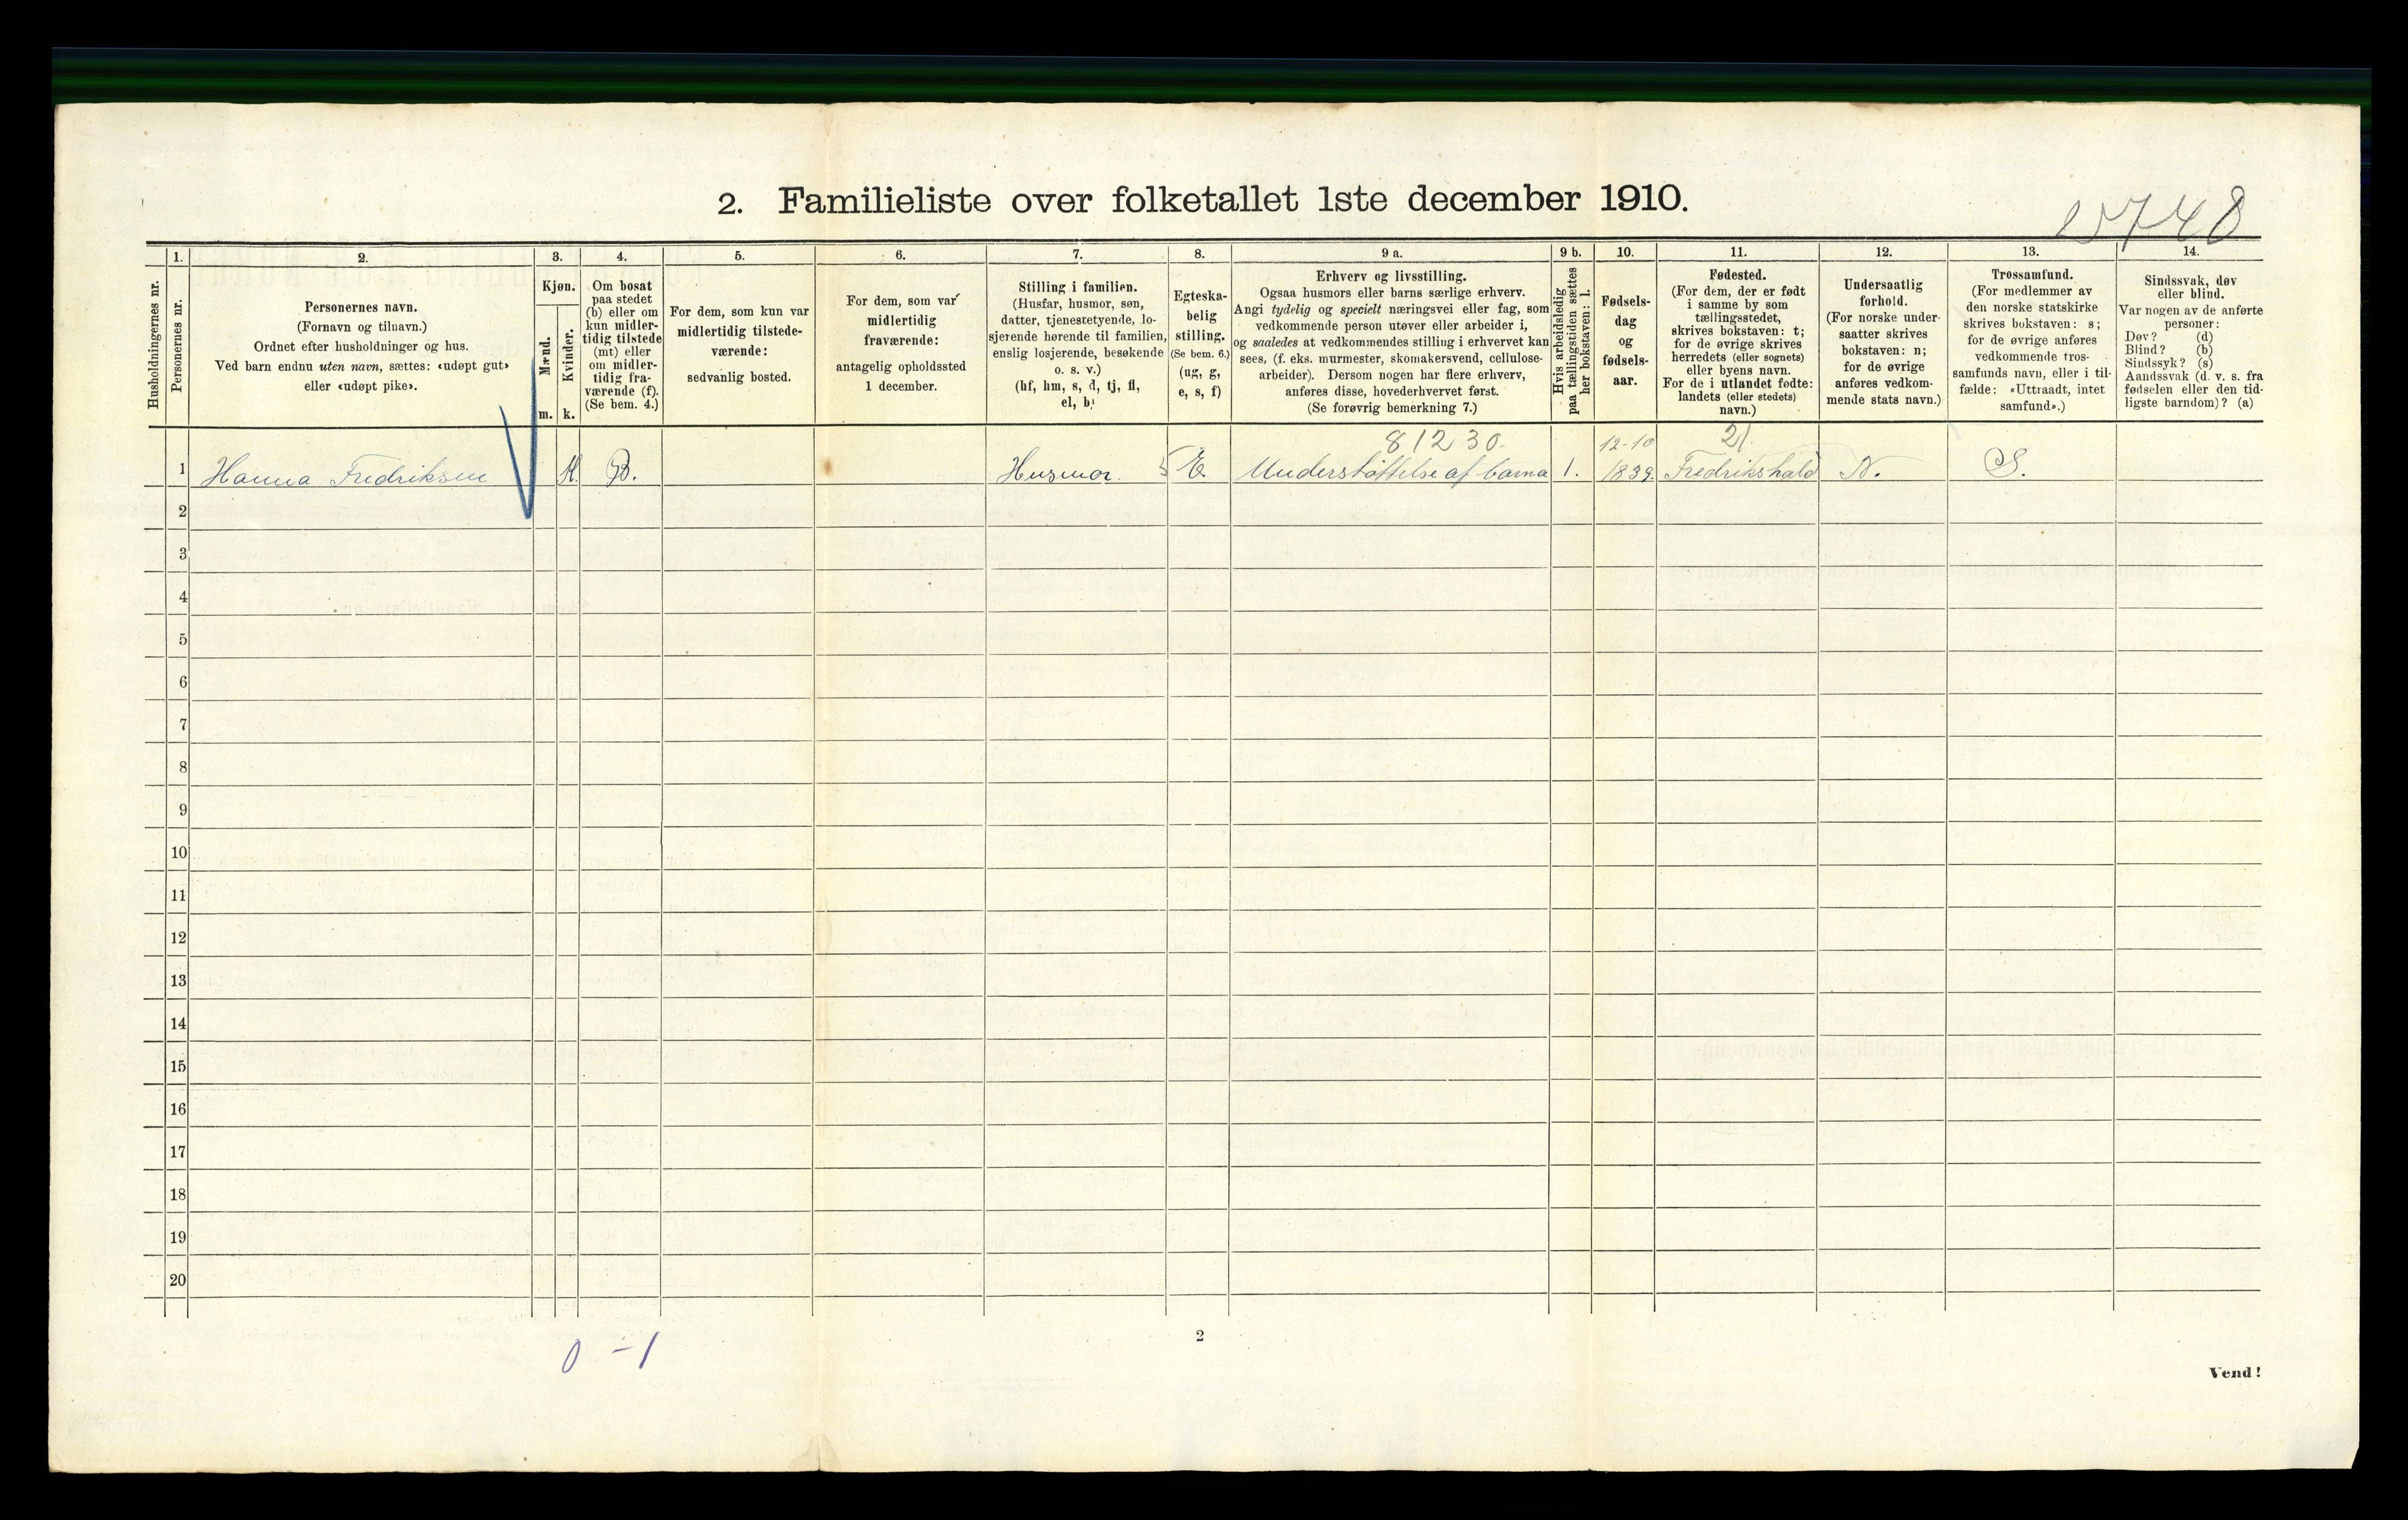 2. Familieliste over folketallet 1ste december 1910.
Husholdningernes nr.
1.
Personernes nr.
2.
Personernes navn.
(Fornavn og tilnavn.)
Ordnet efter husholdninger og hus.
Ved barn endnu uten navn, sættes: «udøpt gut»
eller «udøpt pike».
3.
Kjøn.
Mænd.
m.
Kvinder.
k.
4.
Om bosat
paa stedet
(b) eller om
kun midler-
tidig tilstede
(mt) eller
om midler-
tidig fra-
værende (f).
(Se bem. 4.)
5.
For dem, som kun var
midlertidig tilstede-
værende:
sedvanlig bosted.
6.
For dem, som var
midlertidig
fraværende:
antagelig opholdssted
1 december.
7.
Stilling i familien.
(Husfar, husmor, søn,
datter, tjenestetyende, lo-
sjerende hørende til familien,
enslig losjerende, besøkende
o. s. v.)
(hf, hm, s, d, tj, fl,
el, b)
8.
Egteska-
belig
stilling.
(Se bem. 6.)
(ug, g,
e, s, f)
9 a.
Erhverv og livsstilling.
Ogsaa husmors eller barns særlige erhverv.
Angi tydelig og specielt næringsvei eller fag, som
vedkommende person utøver eller arbeider i,
og saaledes at vedkommendes stilling i erhvervet kan
sees, (f. eks. murmester, skomakersvend, cellulose-
arbeider). Dersom nogen har flere erhverv,
anføres disse, hovederhvervet først.
(Se forøvrig bemerkning 7.)
9 b.
Hvis arbeidsledig
paa tællingstiden sættes
her bokstaven: l.
10.
Fødsels-
dag
og
fødsels-
aar.
11.
Fødested.
(For dem, der er født
i samme by som
tællingsstedet,
skrives bokstaven: t;
for de øvrige skrives
herredets (eller sognets)
eller byens navn.
For de i utlandet fødte:
landets (eller stedets)
navn.)
12.
Undersaatlig
forhold.
(For norske under-
saatter skrives
bokstaven: n;
for de øvrige
anføres vedkom-
mende stats navn.)
13.
Trossamfund.
(For medlemmer av
den norske statskirke
skrives bokstaven: s;
for de øvrige anføres
vedkommende tros-
samfunds navn, eller i til-
fælde: «Uttraadt, intet
samfund».)
14.
Sindssvak, døv
eller blind.
Var nogen av de anførte
personer:
Døv? (d)
Blind? (b)
Sindssyk? (s)
Aandssvak (d. v. s. fra
fødselen eller den tid-
ligste barndom)? (a)
81230. 12-10 21.
1 Hanna Fredriksen K. B. Husmor. E. Understøttelse af barna 1. 1839. Fredrikshald N. S.
2
3
4
5
6
7
8
9
10
11
12
13
14
15
16
17
18
19
20
0 - 1
2
Vend!